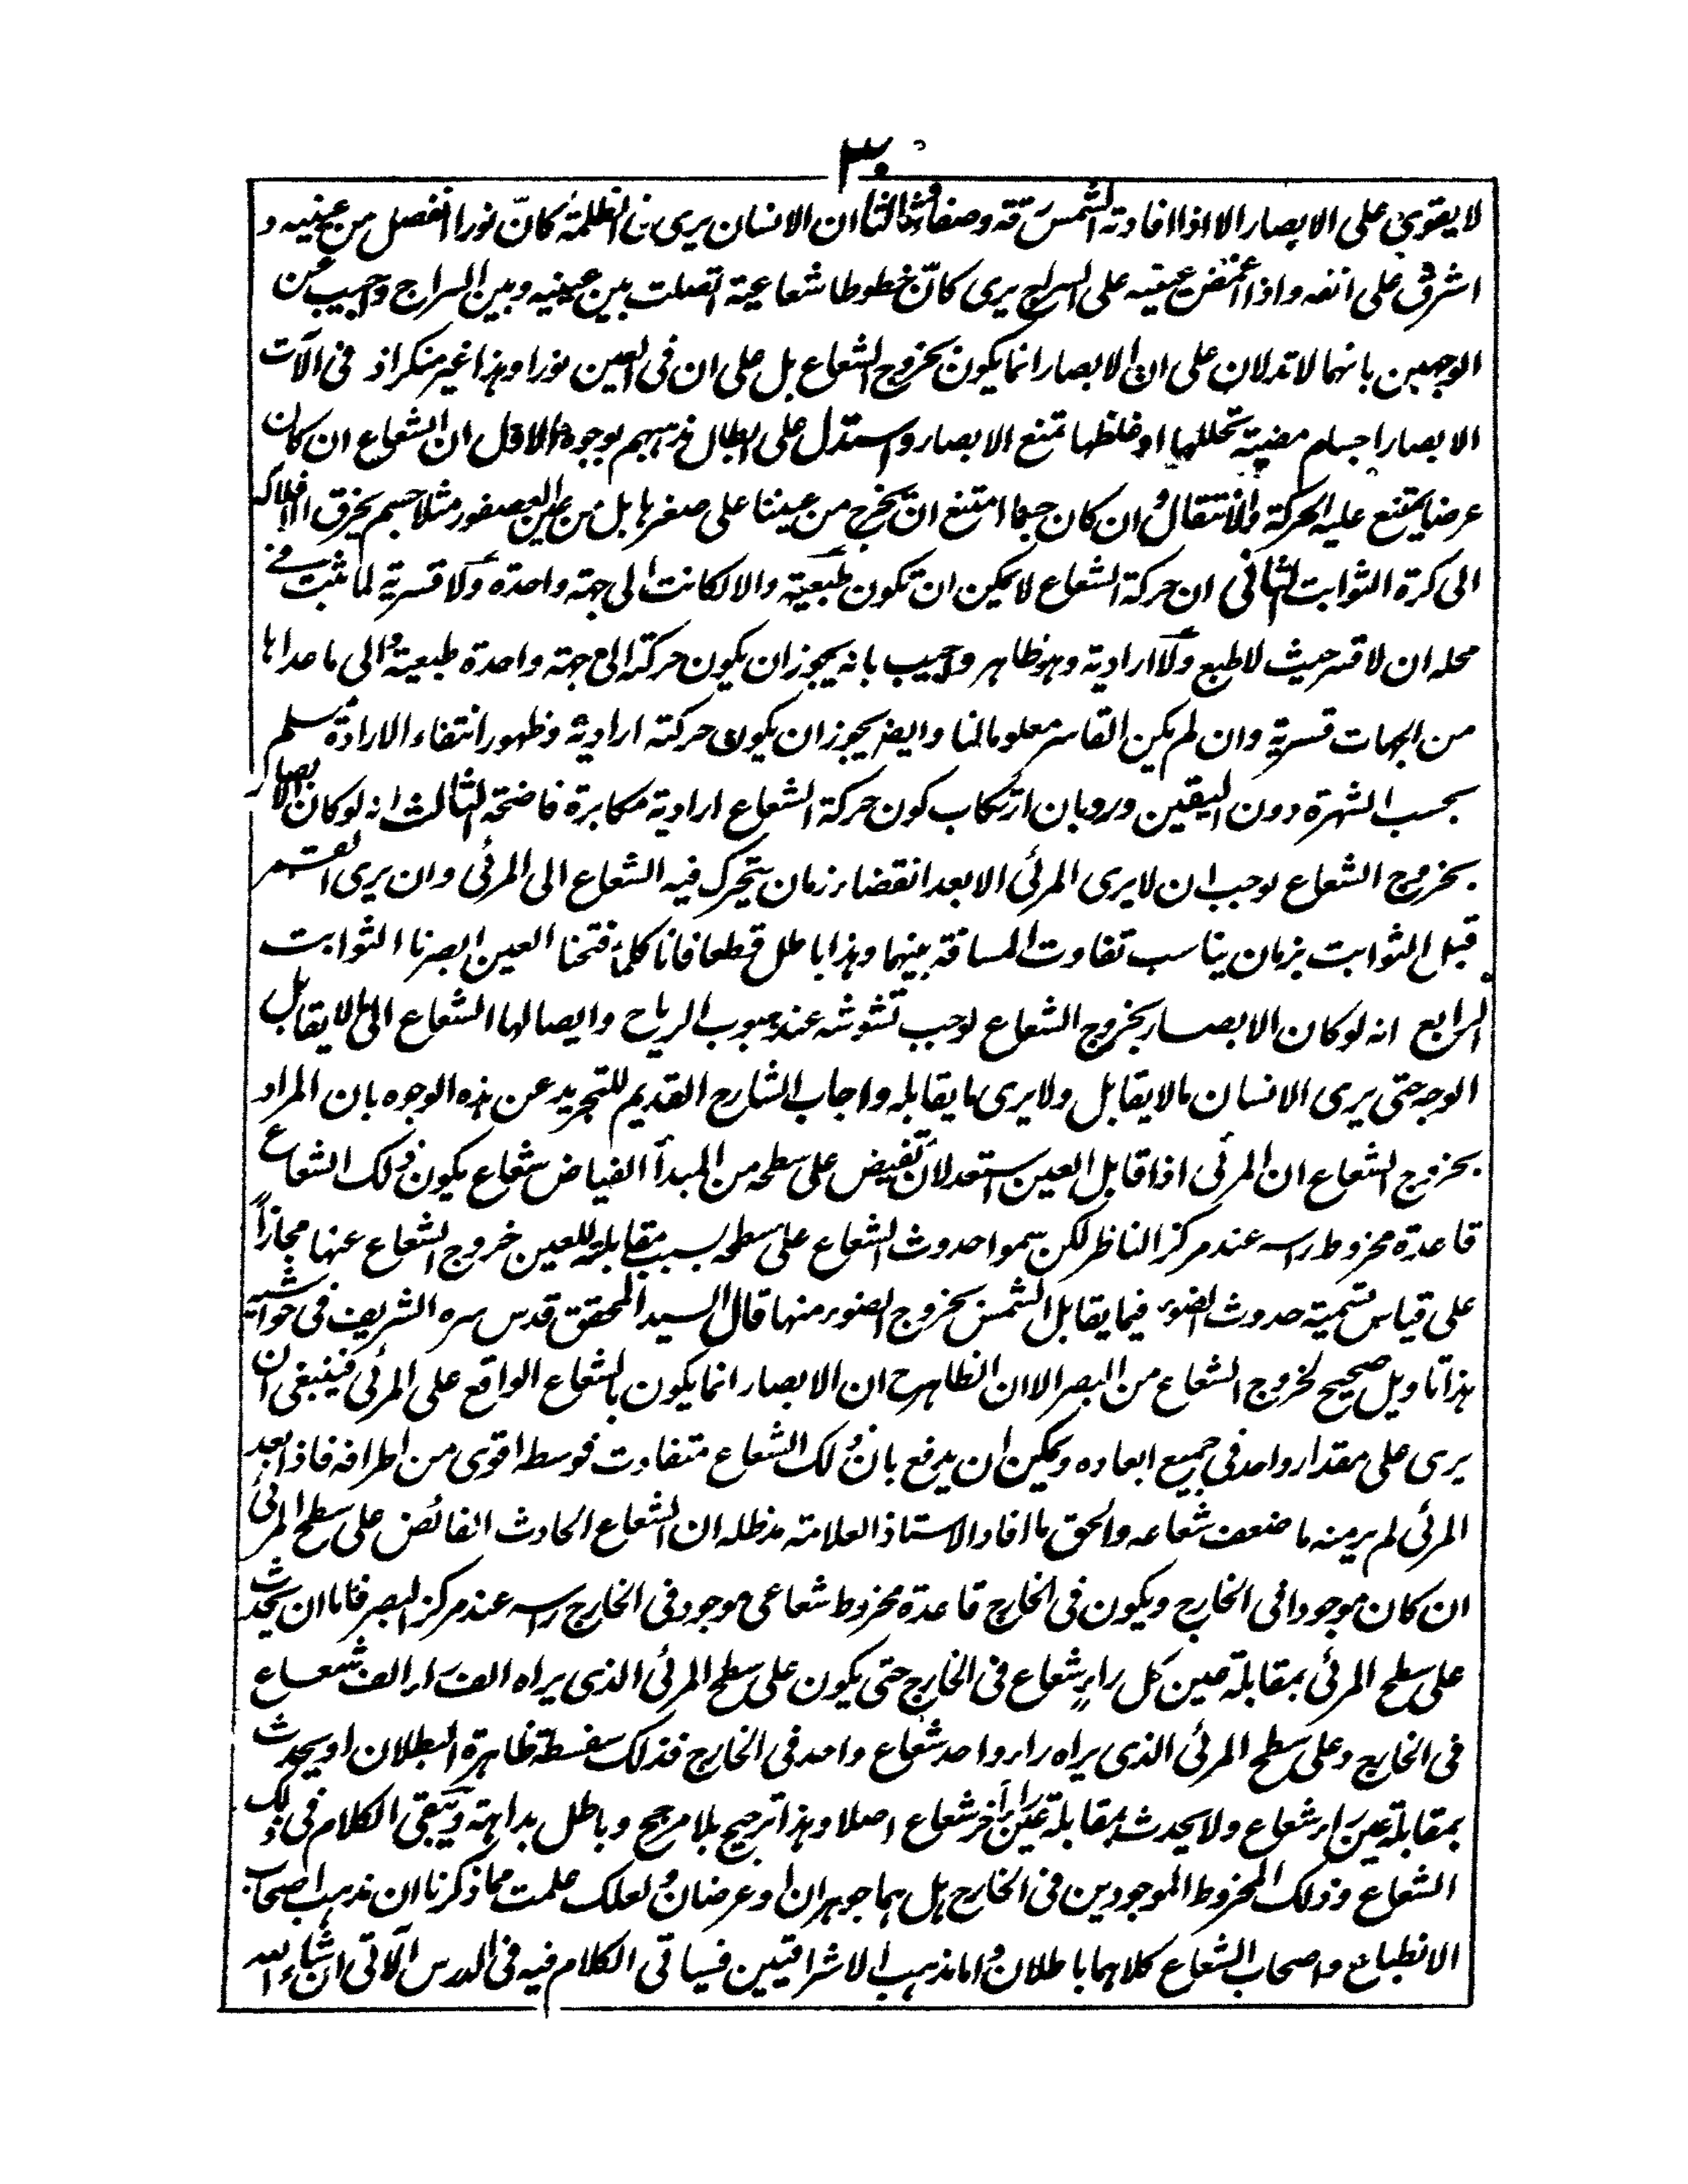 ٣٠
لا يقوى على الابصار الا اذا افادته الشمس رقة وصفاء وثالثا ان الانسان يرى فى الظلمة كانّ نورا انفصل من عينيه و
اشرق على انفه واذا اغمض عينيه على السراج يرى كانّ خطوطا شعاعية اتصلت بين عينيه وبين السراج واجيب عن
الوجهين بانهما لا تدلان على ان الابصار انما يكون بخروج الشعاع بل على ان فى العين نورا وهذا غير منكر اذ فى الآت
الابصار اجسام مضيئة تحللها او غلظها تمنع الابصار واستدل على ابطال مذهبهم بوجوه الاول ان الشعاع ان كان
عرضا يمتنع عليه الحركة والانتقال وان كان جسما امتنع ان يخرج من عيننا على صغرها بل من عين العصفور مثلا جسم يخرق الافلاك
الى كرة الثوابت الثانى ان حركة الشعاع لا يمكن ان تكون طبعية والا لكانت الى جهة واحدة ولا قسرية لما ثبت فے
محله ان لا قسر حيث لا طبع ولا ارادية وهو ظاهر واجيب بانه يجوز ان يكون حركته الى جهة واحدة طبعية والى ما عداها
من الجهات قسرية وان لم يكن القاسر معلوما لنا وايضا يجوز ان يكون حركته ارادية وظهور انتفاء الارادة مسلم
بحسب الشهرة دون اليقين ورد بان ارتكاب كون حركة الشعاع ارادية مكابرة فاضحة الثالث انه لو كان الابصار
بخروج الشعاع لوجب ان لا يرى المرئى الا بعد انقضاء زمان يتحرك فيه الشعاع الى المرئى وان يرى القمر
قبل الثوابت بزمان يناسب تفاوت المسافة بينهما وهذا باطل قطعا فانا كلما فتحنا العين ابصرنا الثوابت
الرابع انه لو كان الابصار بخروج الشعاع لوجب تشوشه عند هبوب الرياح وايصالها الشعاع الى ما لا يقابل
الوجه حتى يرى الانسان ما لا يقابل ولا يرى ما يقابله واجاب الشارح القديم للتجريد عن هذه الوجوه بان المراد
بخروج الشعاع ان المرئى اذا قابل العين استعد لان تفيض على سطحه من المبدأ الفياض شعاع يكون ذلك الشعاع
قاعدة مخروط راسه عند مركز الناظر لكن سموا حدوث الشعاع على سطحه بسبب مقابلته للعين خروج الشعاع عنها مجازاً
على قياس تسمية حدوث الضوء فيما يقابل الشمس بخروج الضوء منها قال السيد المحقق قدس سره الشريف فى حواشيه
هذا تاويل صحيح لخروج الشعاع من البصر الا ان الظاهر ح ان الابصار انما يكون بالشعاع الواقع على المرئى فينبغى ان
يرى على مقدار واحد فى جميع ابعاده ويمكن ان يدفع بان ذلك الشعاع متفاوت فوسطه اقوى من اطرافه فاذا بعد
المرئى لم ير منه ما ضعف شعاعه والحق ما افاد الاستاذ العلامة مدظله ان الشعاع الحادث الفائض على سطح المرئى
ان كان موجودا فى الخارج ويكون فى الخارج قاعدة مخروط شعاعى موجود فى الخارج راسه عند مركز البصر فاما ان يحدث
على سطح المرئى بمقابلة عين كل راءٍ شعاع فى الخارج حتى يكون على سطح المرئى الذى يراه الف راء الف شعاع
فى الخارج وعلى سطح المرئى الذى يراه راء واحد شعاع واحد فى الخارج فذلك سفسطة ظاهرة البطلان او يحدث
بمقابلة عين راء شعاع ولا يحدث بمقابلة عين راء آخر شعاع اصلا وهذا ترجيح بلا مرجح وباطل بداهة ويبقى الكلام فى ذلك
الشعاع وذلك المخروط الموجودين فى الخارج هل هما جوهران او عرضان ولعلك علمت مما ذكرنا ان مذهب اصحاب
الانطباع واصحاب الشعاع كلاهما باطلان واما مذهب الاشراقيين فسياتى الكلام فيه فى الدرس الآتى ان شاء الله